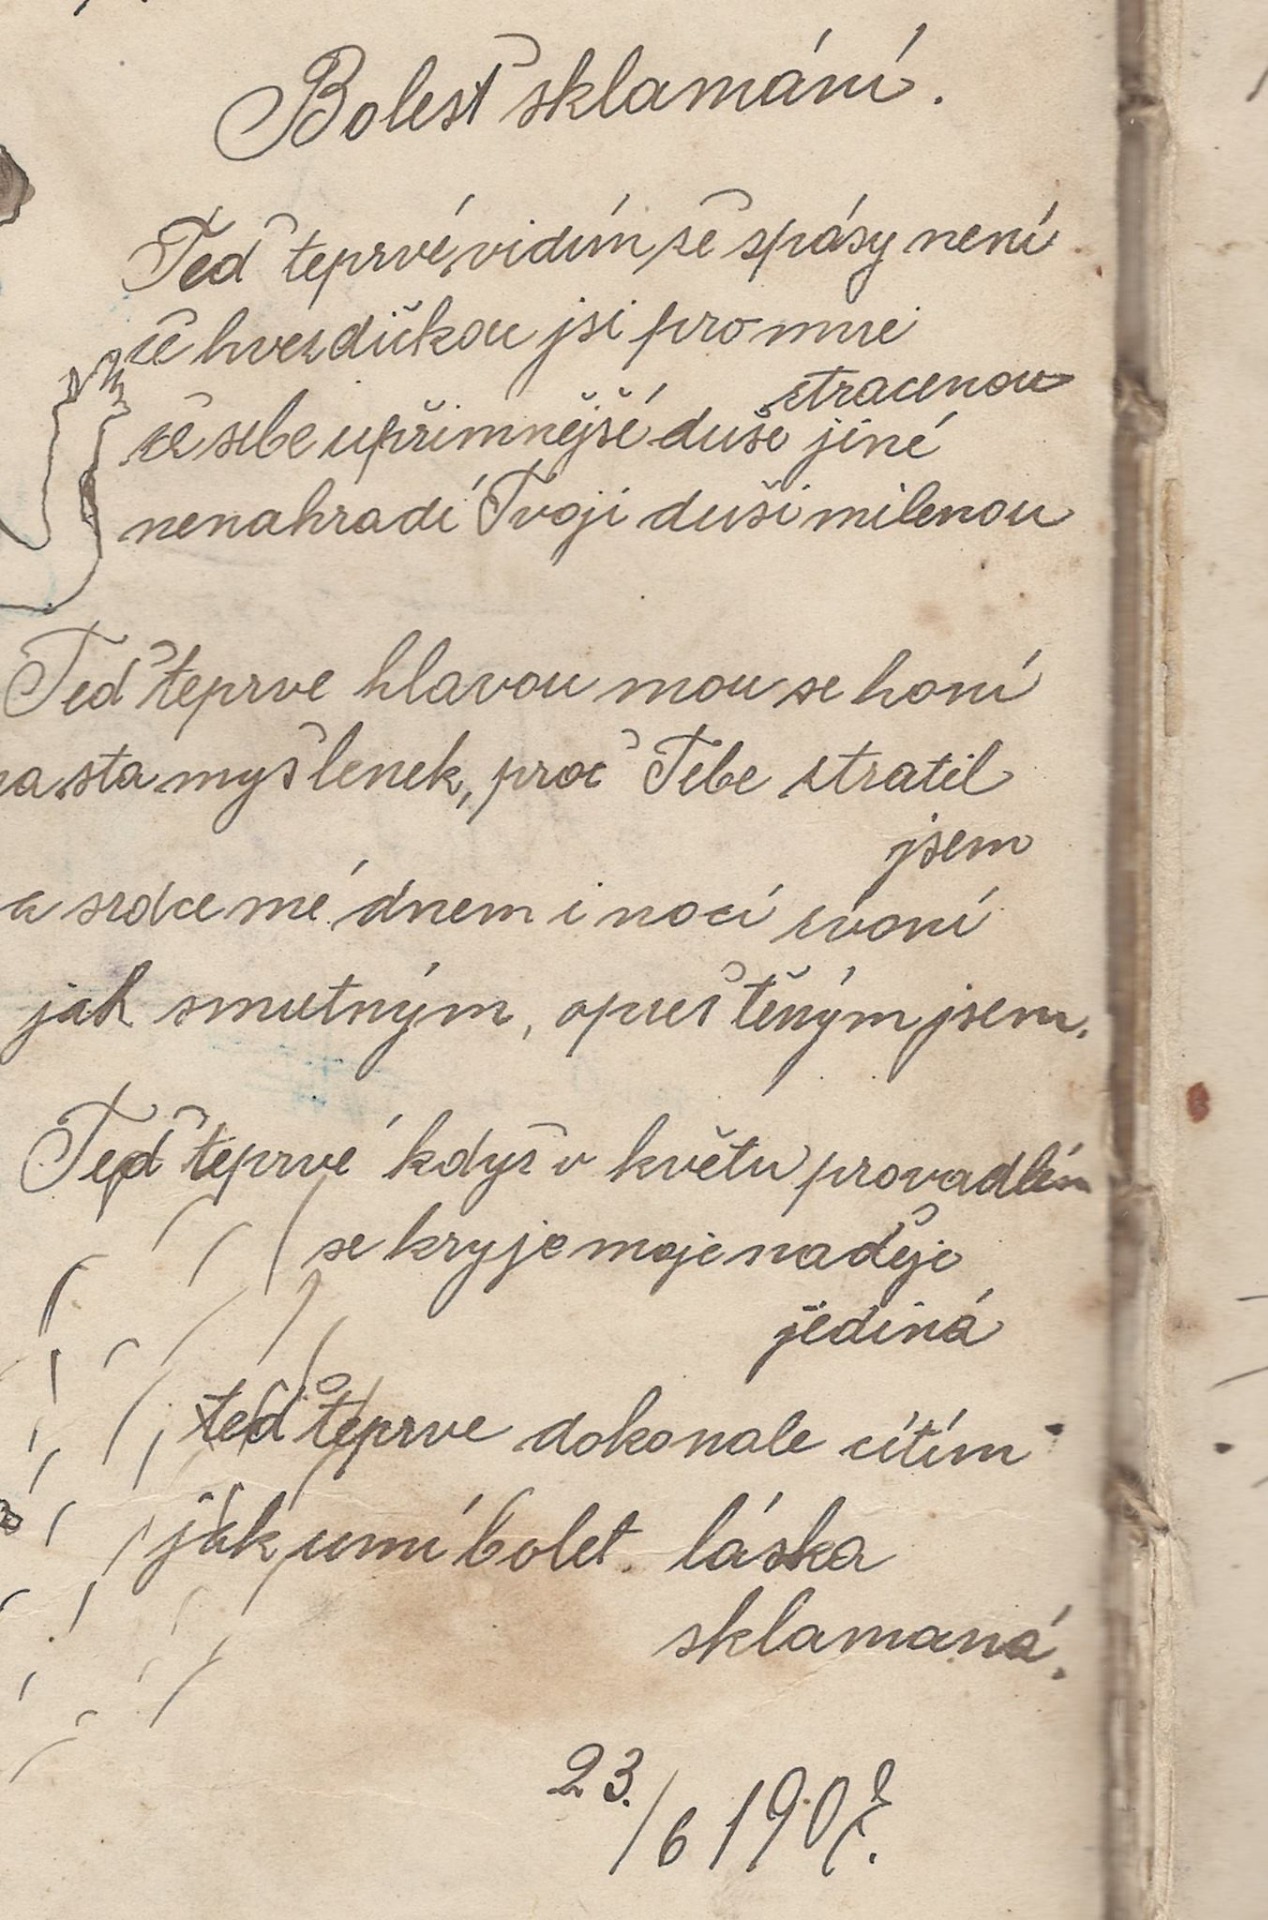 Bolest sklamání.
Teď teprvé, vidím, že spásy není
že hvezdičkou jsi pro mne
ztracenou
že sebe upřimnějšé duše jiné
nenahradí Tvoji duši milenou
Teď teprve hlavou mou se honí
na sta myšlenek, proč Tebe ztratil
jsem
a srdce mé dnem i nocí zvoní
jak smutným, opuštěným jsem.
Teď teprvé když v květu
se kryje moje naděje
jediná
teď teprve dokonale cítím
jak umí bolet láska
sklamaná.
23./6 190